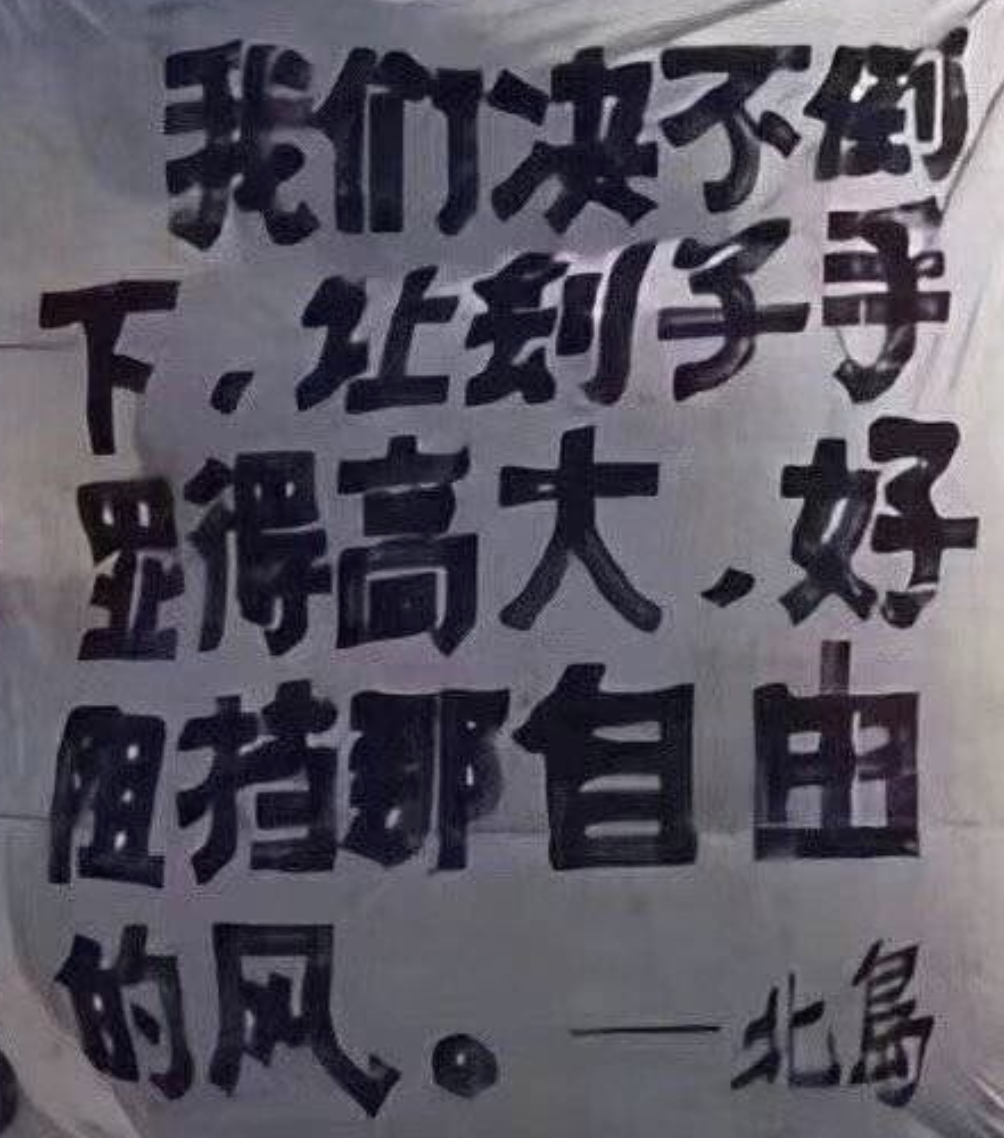 我们决不倒
下，让刽子手
显得高大，好
阻挡那自由
的风。——北島